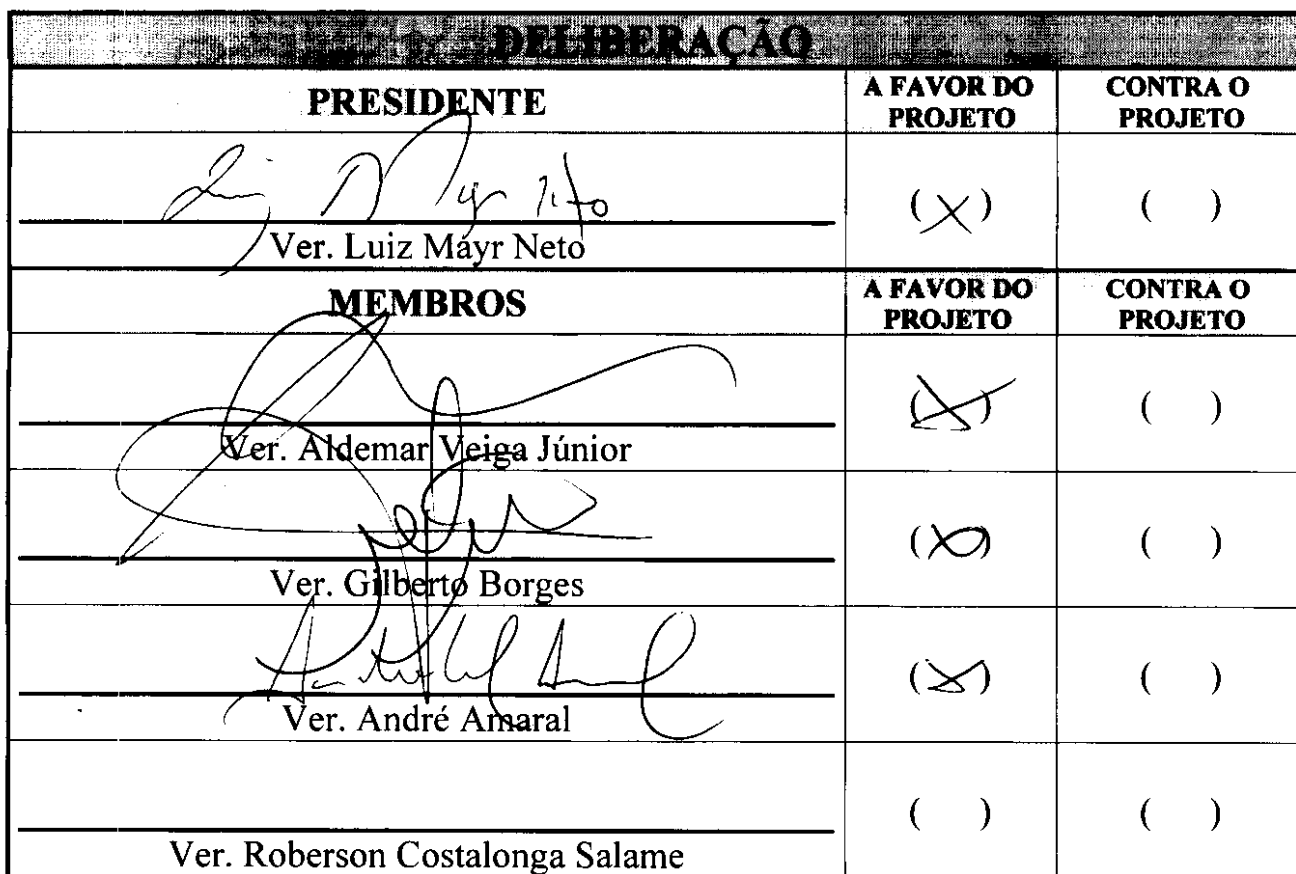 DELIBERAÇÃO
PRESIDENTE
A FAVOR DO PROJETO
CONTRA O PROJETO
Ver. Luiz Mayr Neto
(X)
( )
MEMBROS
A FAVOR DO PROJETO
CONTRA O PROJETO
Ver. Aldemar Veiga Júnior
(X)
( )
Ver. Gilberto Borges
(X)
( )
Ver. André Amaral
(X)
( )
Ver. Roberson Costalonga Salame
( )
( )